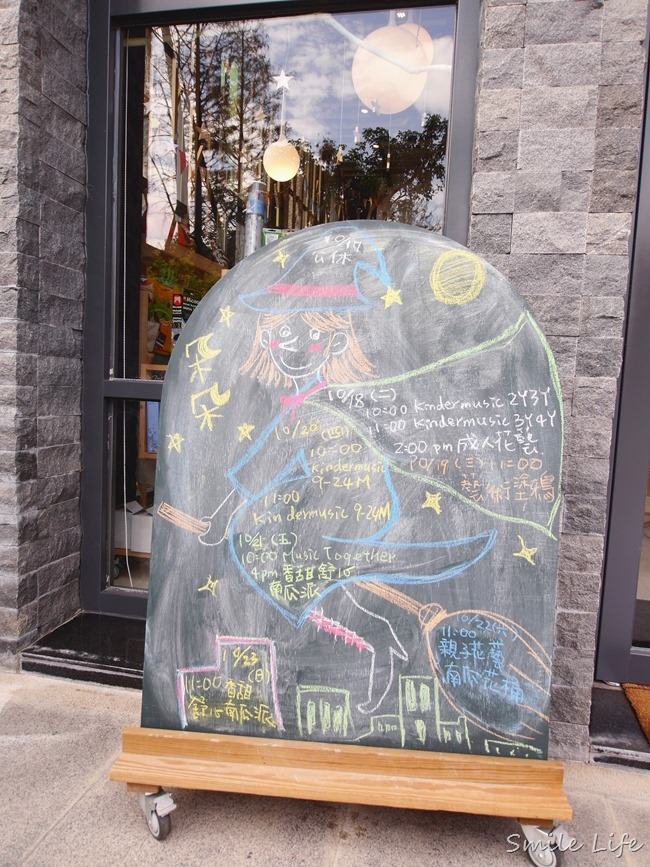 10/17
公休
朵朵
10/18(二)
10:00 Kindermusic 2Y3Y
11:00 Kindermusic 3Y4Y
2:00 pm 成人花藝
10/19(三) 11:00
藝術塗鴉
10/20(四)
10:00
Kindermusic
9-24M
11:00
Kindermusic 9-24M
10/21(五)
10:00 Music Together
4pm 香甜舒心
南瓜派
10/22(六)
11:00
親子花藝
南瓜花桶
10/23
(日)
11:00 香甜
舒心南瓜派
Smile Life